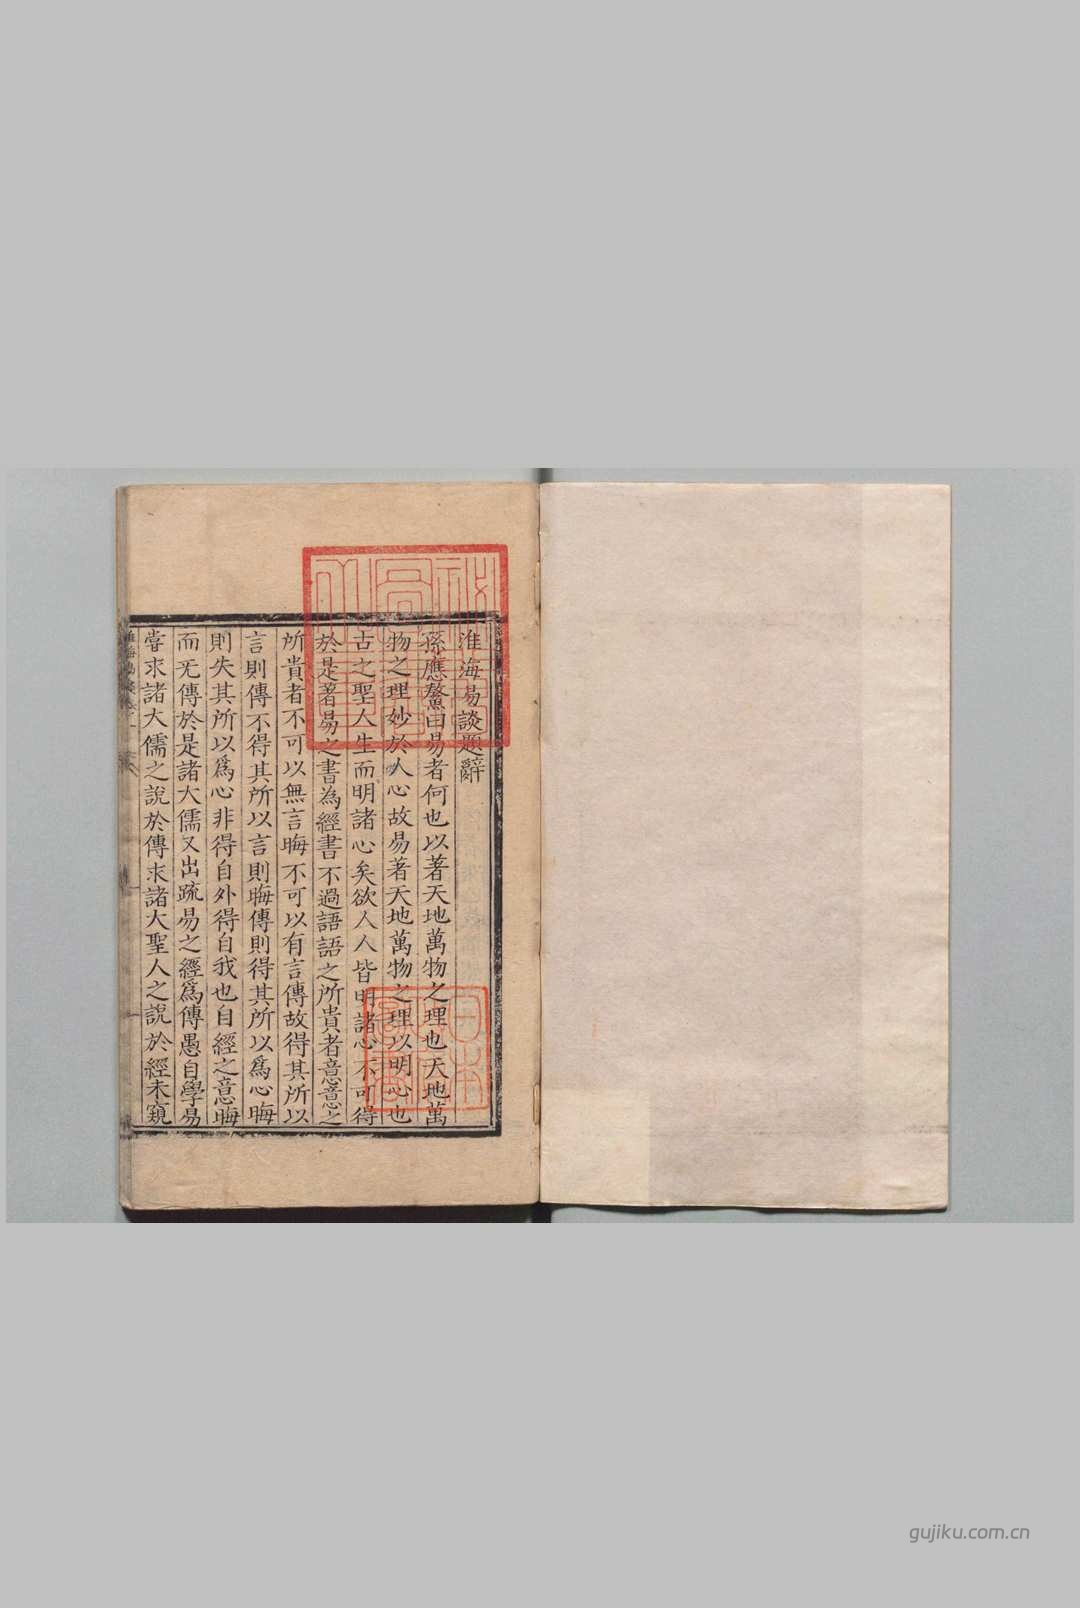 淮海易談題辭
孫應鰲曰易者何也以著天地萬物之理也天地萬
物之理妙於人心故易著天地萬物之理以明心也
古之聖人生而明諸心矣欲人人皆明諸心不可得
於是著易之書為經書不過語語之所貴者意意之
所貴者不可以無言晦不可以有言傳故得其所以
言則傳不得其所以言則晦傳則得其所以爲心晦
則失其所以爲心非得自外得自我也自經之意晦
而无傳於是諸大儒又出疏易之經爲傳愚自學易
甞求諸大儒之說於傳求諸大聖人之說於經未窺
gujiku.com.cn